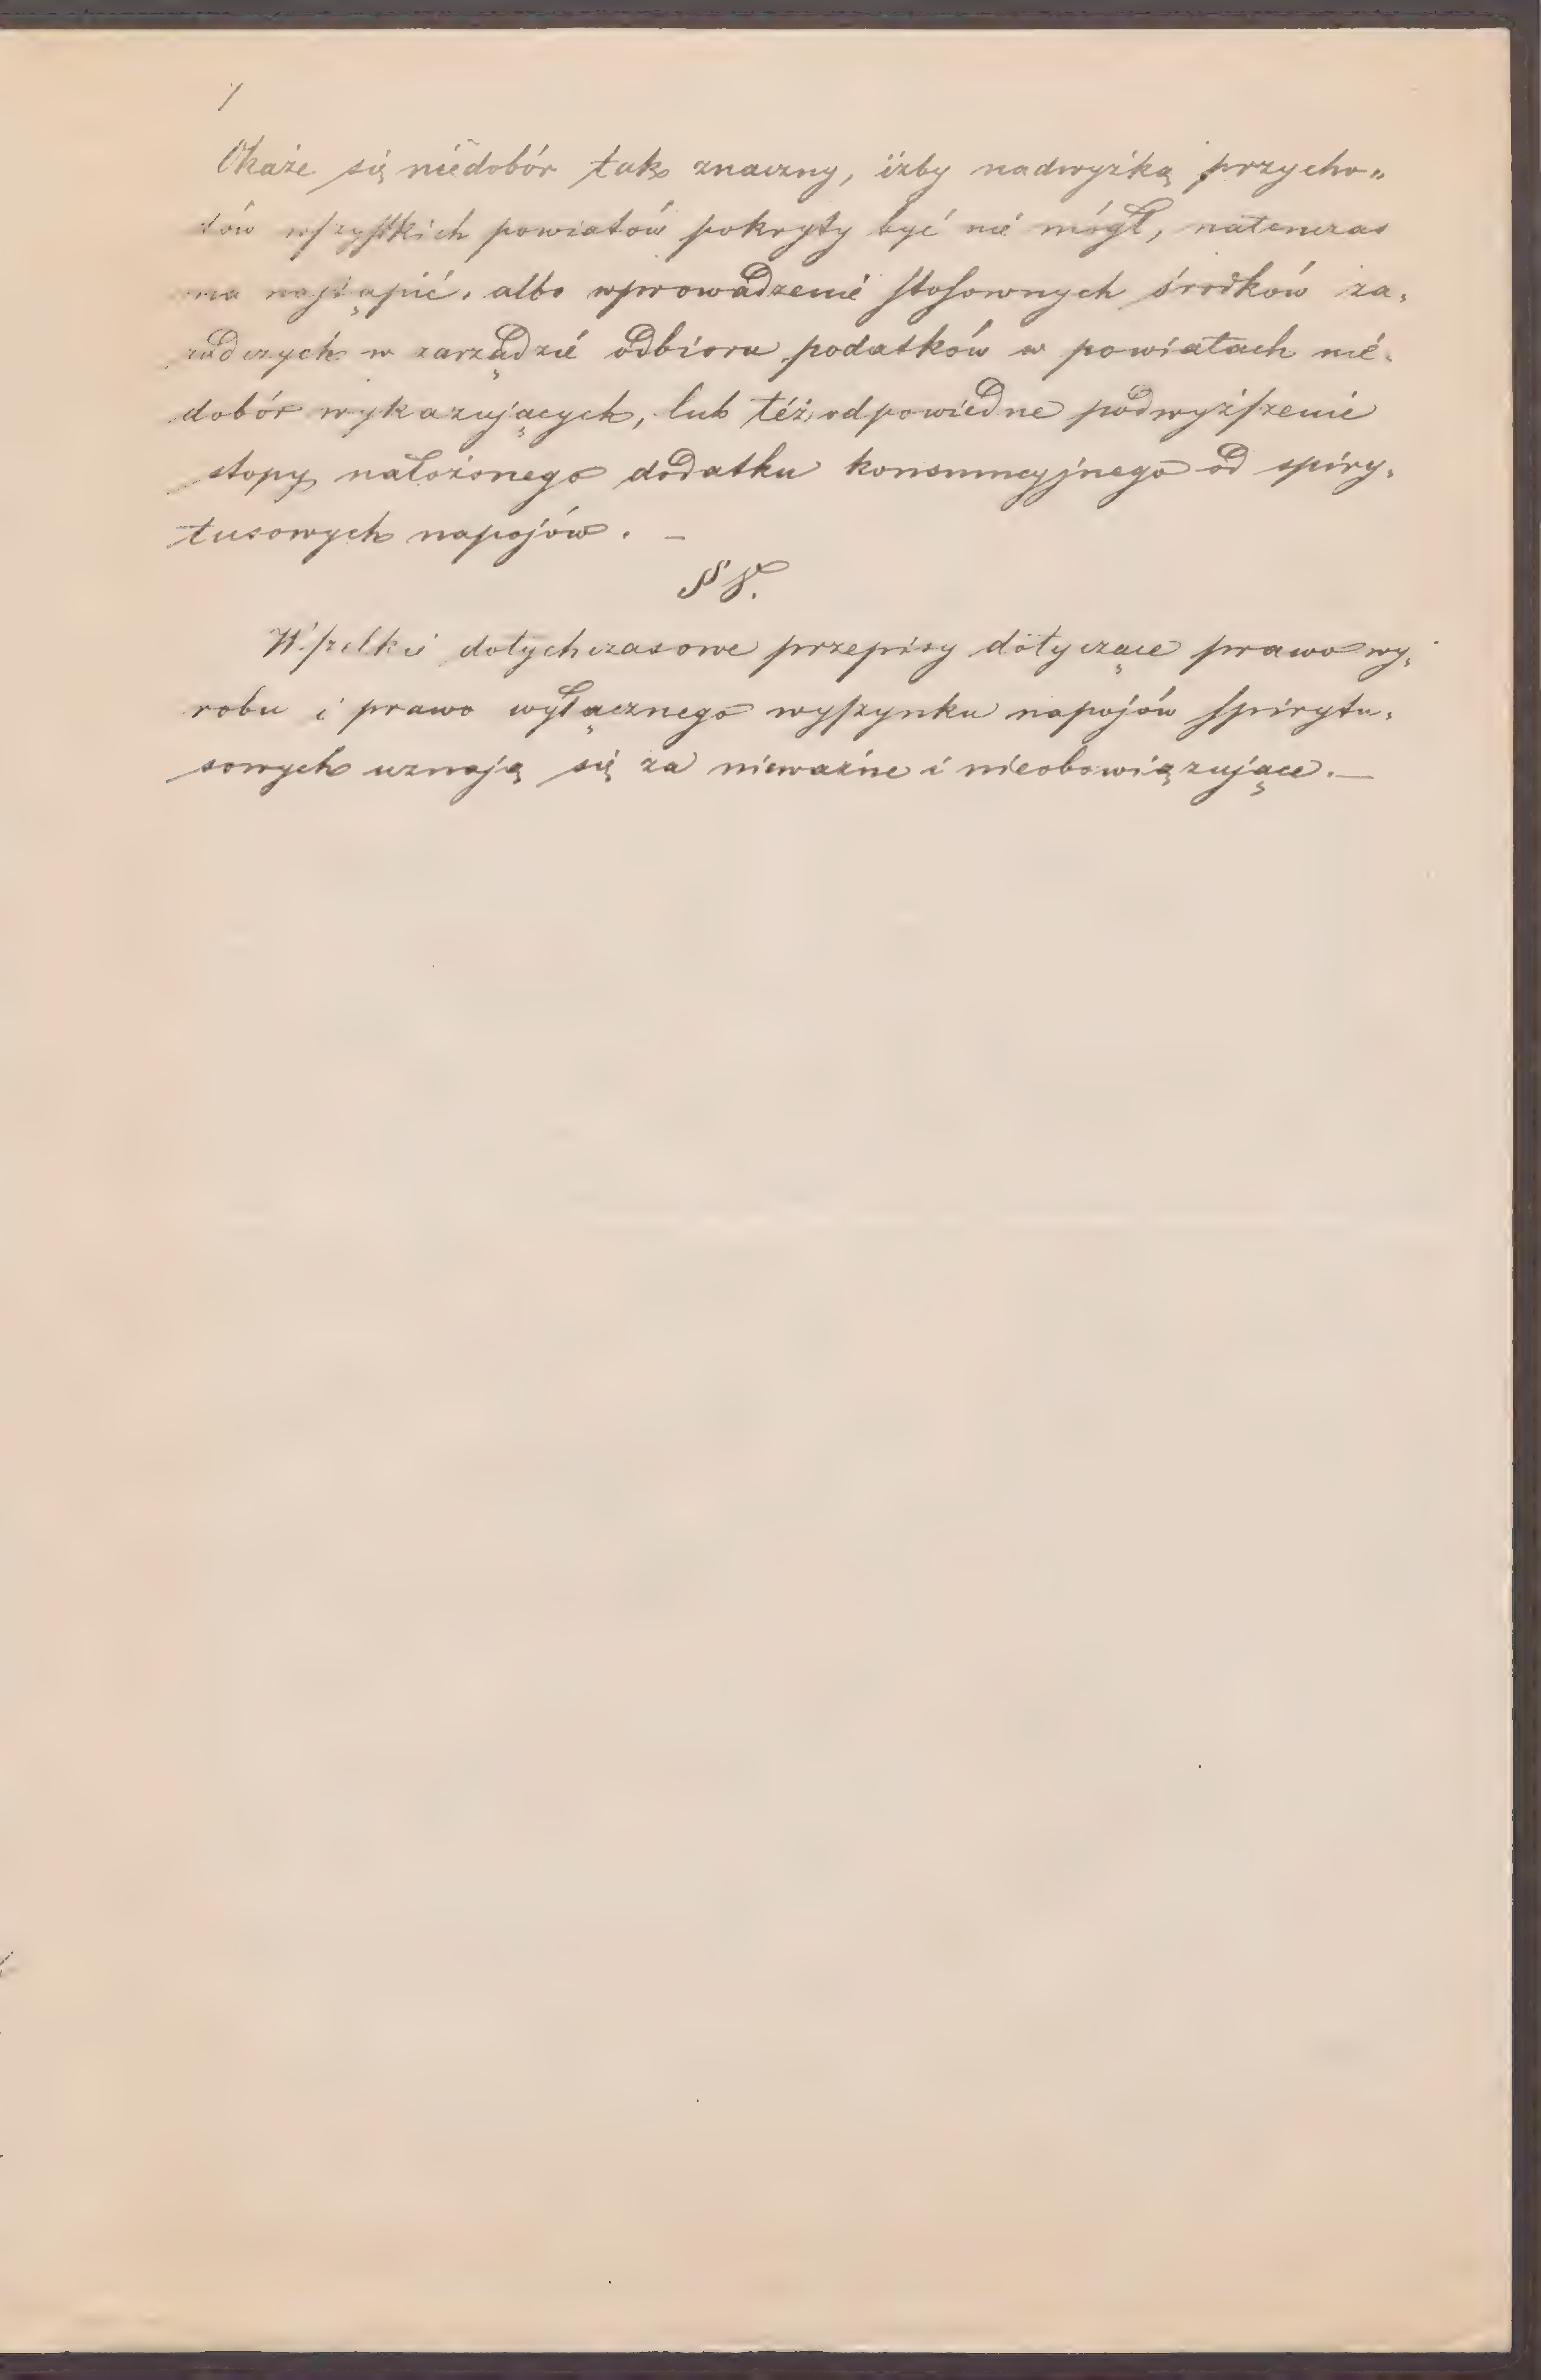 Okaże się niedobór tak znaczny, iżby nadwyżką przycho„
dów wszystkich powiatów pokryty być nie mógł, natenczas
ma nastąpić, albo wprowadzenie stosownych środków za„
radczych w zarządzie odbioru podatków w powiatach nie„
dobór wykazujących, lub też odpowiedne podwyższenie
stopy nałożonego dodatku konsumcyjnego od spiry„
tusowych napojów. —
§ 8.
Wszelkie dotychczasowe przepisy dotyczące prawo wy„
robu i prawo wyłącznego wyszynku napojów spirytu„
sowych uznają się za nieważne i nieobowiązujące. —